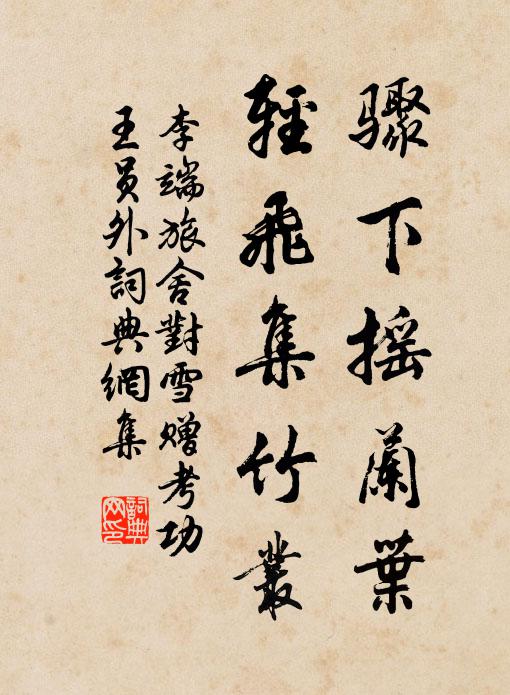 驟下搖蘭葉
輕飛集竹叢
李端旅舍對雪贈考功
王員外詞典網集
詞典
网印